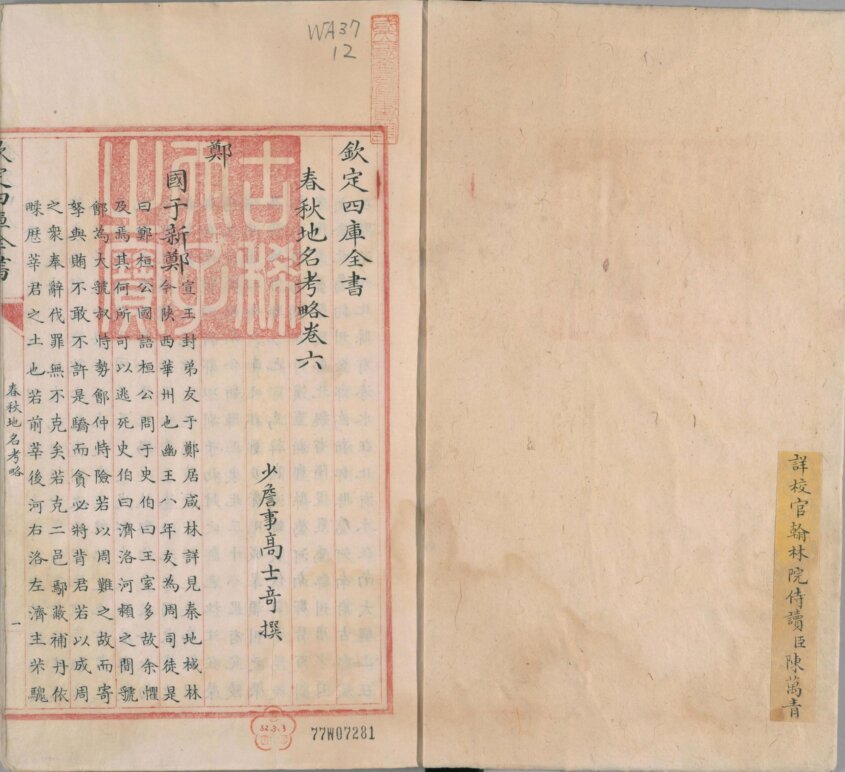 詳校官翰林院侍讀臣陳萬青
WA37
12
欽定四庫全書
春秋地名考略卷六
少詹事高士奇撰
鄭
國于新鄭宣王封弟友于鄭居咸林詳見秦地棫林
今陜西華州也幽王八年友為周司徒是
曰鄭桓公國語桓公問于史伯曰王室多故余懼
及焉其何所可以逃死史伯曰濟洛河潁之間虢
鄶為大虢叔恃勢鄶仲恃險若以周難之故而寄
孥與賄不敢不許是驕而貪必將背君若以成周
之衆奉辭伐罪無不克矣若克二邑鄢蔽補丹依
𪑆歴莘君之土也若前莘後河右洛左濟主芣騩
欽定四庫全書
春秋地名考略
一
古稀天子之寶
32.3.3
77W07281